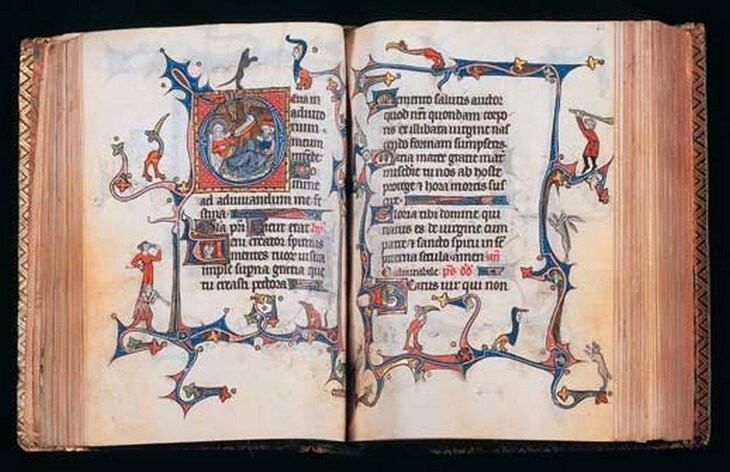 Eus in
adiuto
rium
meum
intende
ad adiuuandum me fe
stina
Gla pri Sicut erat
eni creator spiritus
mentes tuor uisita
imple supna gratia que
tu creasti pectora
emento salutis auctor
quod nri quondam corpo
ris ex illibata uirgine nas
cendo formam sumpseris
aria mater gratie mat
misdie tu nos ab hoste
protege & hora mortis sus
cipe
loria tibi domine qui
natus es de uirgine cum
patre & sancto spiritu in se
piterna secula amen
eatus uir qui non